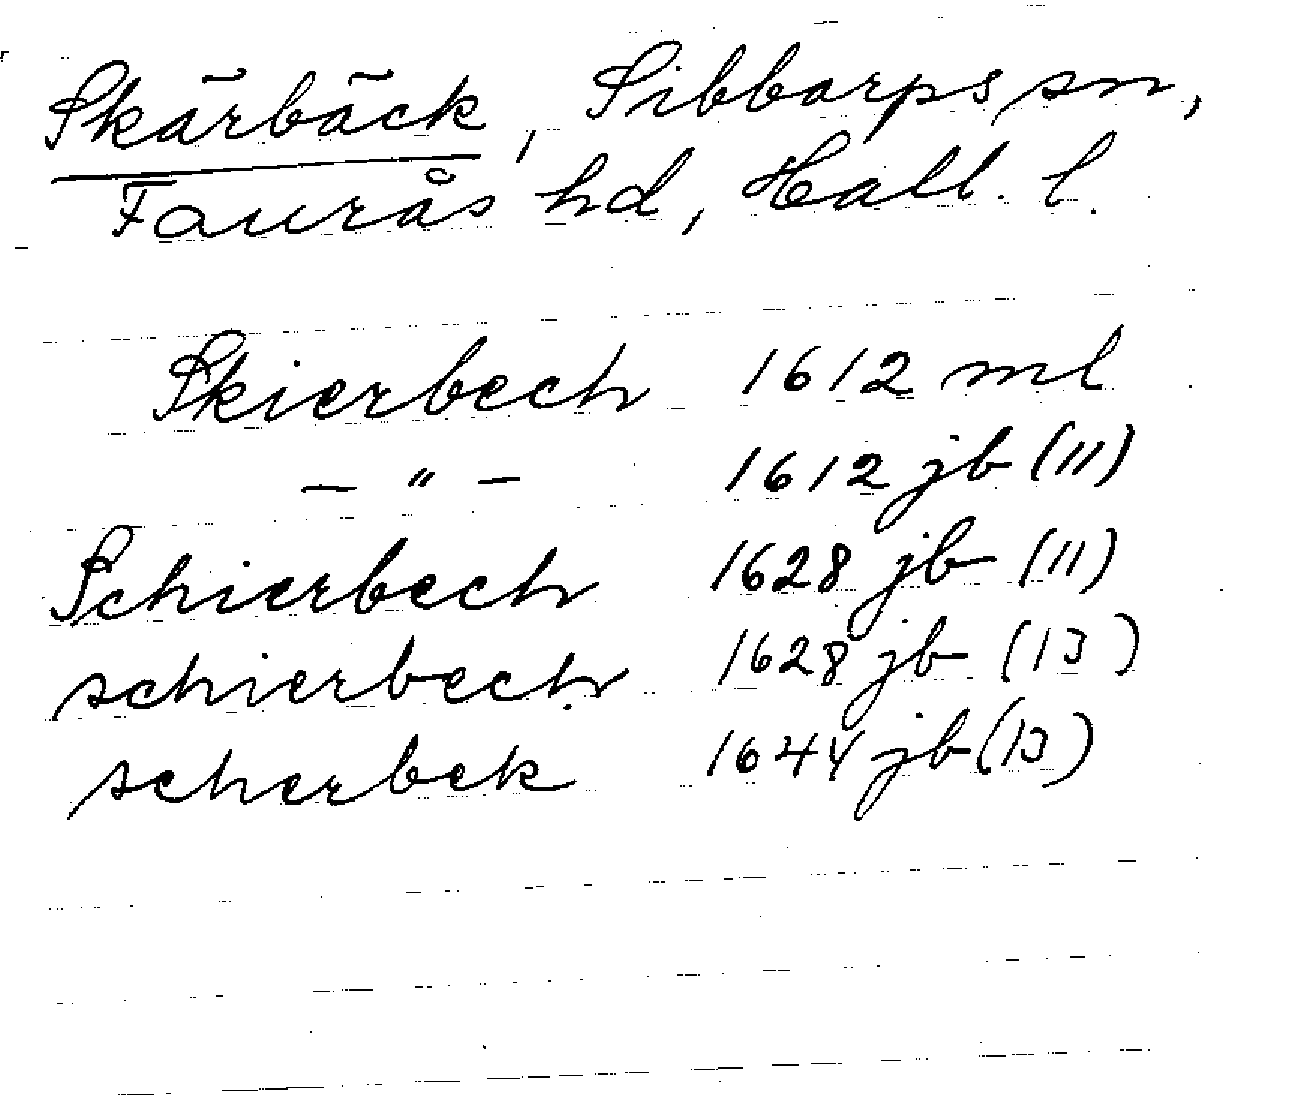 Skärbäck, Sibbarps sn,
Faurås hd, Hall. l.
Skierbech 1612 ml
— " — 1612 jb (11)
Schierbech 1628 jb (11)
schierbech 1628 jb (13)
scherbek 1644 jb (13)